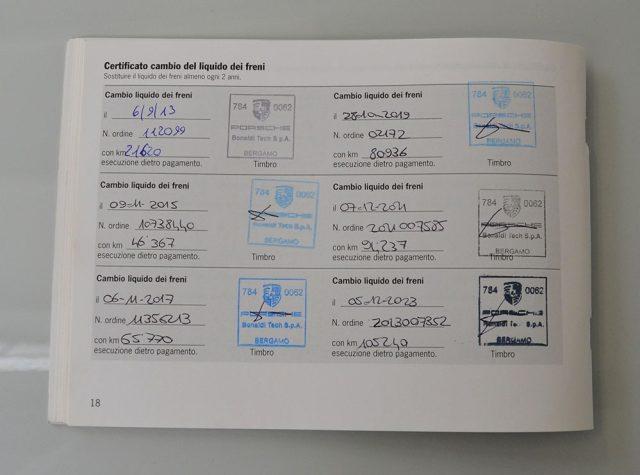 Certificato cambio del liquido dei freni
Sostituire il liquido dei freni almeno ogni 2 anni.
Cambio liquido dei freni
il 6/9/13
N. ordine 112099
con km 21620
esecuzione dietro pagamento.
784 0062
PORSCHE
Bonaldi Tech S.p.A.
BERGAMO
Timbro
Cambio liquido dei freni
il 09-11-2015
N. ordine 10738440
con km 46'367
esecuzione dietro pagamento.
784 0062
PORSCHE
Bonaldi Tech S.p.A.
BERGAMO
Timbro
Cambio liquido dei freni
il 06-11-2017
N. ordine 11356213
con km 65'770
esecuzione dietro pagamento.
784 0062
PORSCHE
Bonaldi Tech S.p.A.
BERGAMO
Timbro
Cambio liquido dei freni
il 28-10-2019
N. ordine 02172
con km 80936
esecuzione dietro pagamento.
784 0062
PORSCHE
Bonaldi Tech S.p.A.
BERGAMO
Timbro
Cambio liquido dei freni
il 07-12-2021
N. ordine
con km 94'237
esecuzione dietro pagamento.
784 0062
PORSCHE
Bonaldi Tech S.p.A.
BERGAMO
Timbro
Cambio liquido dei freni
il 05-12-2023
N. ordine 2013007852
con km 105240
esecuzione dietro pagamento.
784 0062
PORSCHE
Bonaldi S.p.A.
BERGAMO
Timbro
18